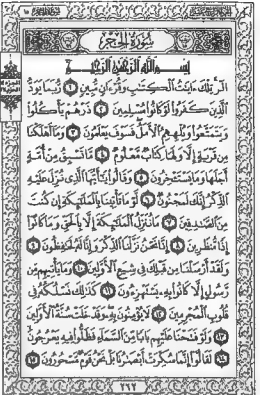 سورة الحجر
بسم الله الرحمن الرحيم
الر تلك ءايت الكتب وقرءان مبين ١ ربما يود
الذين كفروا لو كانوا مسلمين ٢ ذرهم يأكلوا
ويتمتعوا ويلههم الأمل فسوف يعلمون ٣ وما أهلكنا
من قرية إلا ولها كتاب معلوم ٤ ما تسبق من أمة
أجلها وما يستخرون ٥ وقالوا يأيها الذى نزل عليه
الذكر إنك لمجنون ٦ لو ما تأتينا بالملئكة إن كنت
من الصدقين ٧ ما ننزل الملئكة إلا بالحق وما كانوا
إذا منظرين ٨ إنا نحن نزلنا الذكر وإنا له لحفظون ٩
ولقد أرسلنا من قبلك فى شيع الأولين ١٠ وما يأتيهم من
رسول إلا كانوا به يستهزءون ١١ كذلك نسلكه فى
قلوب المجرمين ١٢ لا يؤمنون به وقد خلت سنة الأولين
١٣ ولو فتحنا عليهم بابا من السماء فظلوا فيه يعرجون
١٤ لقالوا إنما سكرت أبصرنا بل نحن قوم مسحورون ١٥
٢٦٢